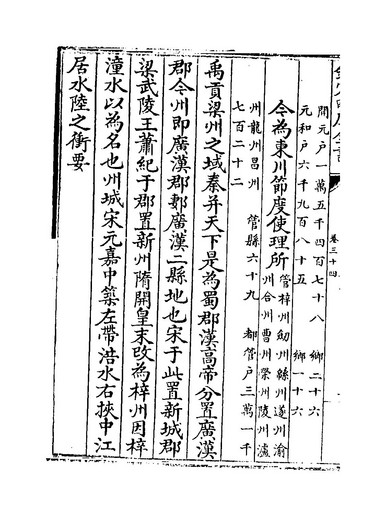 卷三十四
開元户一萬五千四百七十八 鄉二十六
元和户六千九百八十五 鄉一十六
今為東川節度使理所 管梓州劒州緜州遂州渝
州合州曹州榮州陵州瀘
州龍州昌州 管縣六十九 都管户三萬一千
七百二十二
禹貢梁州之域秦并天下是為蜀郡漢高帝分置廣漢
郡今州即廣漢郡郪廣漢二縣地也宋于此置新城郡
梁武陵王蕭紀于郡置新州隋開皇末改為梓州因梓
潼水以為名也州城宋元嘉中築左帶涪水右挾中江
居水陸之衝要